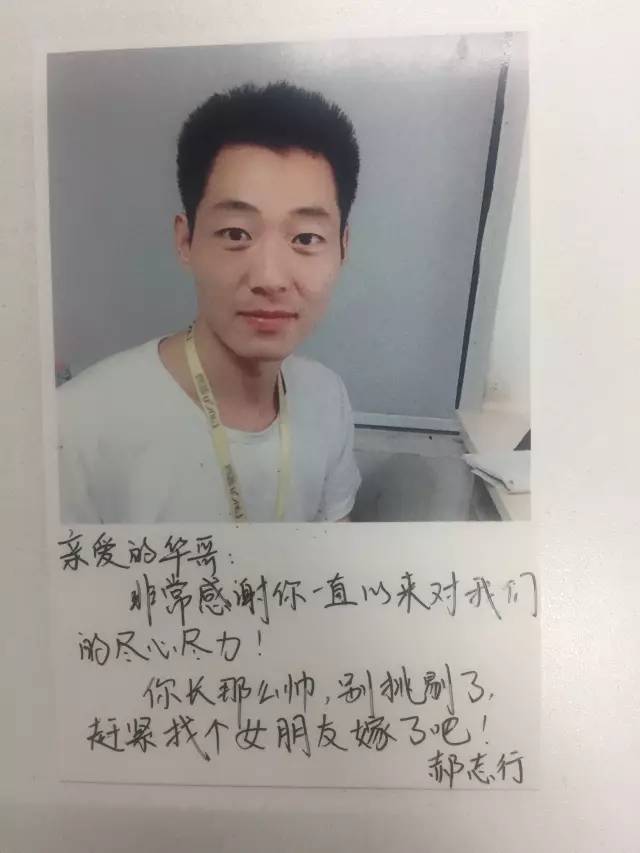 亲爱的华哥：
非常感谢你一直以来对我们
的尽心尽力！
你长那么帅，别挑剔了，
赶紧找个女朋友嫁了吧！
郝志行